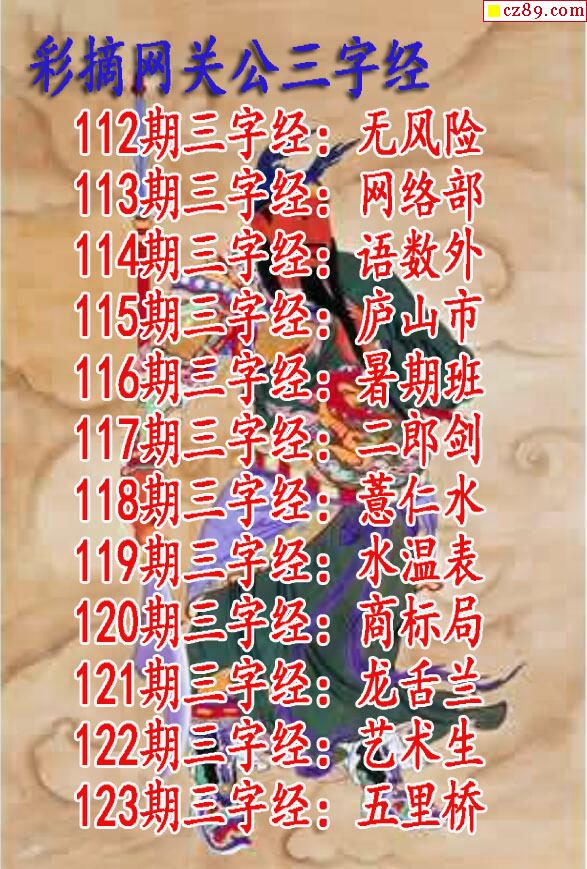 cz89.com
彩摘网关公三字经
112期三字经：无风险
113期三字经：网络部
114期三字经：语数外
115期三字经：庐山市
116期三字经：暑期班
117期三字经：二郎剑
118期三字经：薏仁水
119期三字经：水温表
120期三字经：商标局
121期三字经：龙舌兰
122期三字经：艺术生
123期三字经：五里桥